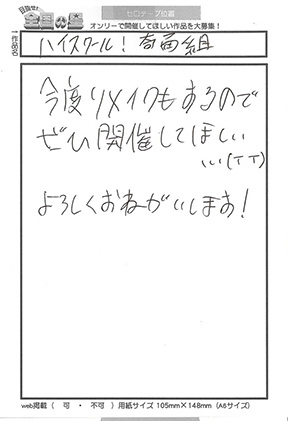 セロテープ位置
目指せ!全国の星
オンリーで開催してほしい作品を大募集!
ハイスクール!奇面組
今度リメイクもあるので
ぜひ開催してほしい
いい(TT)
よろしくおねがいしまあ!
web掲載( 可 ・ 不可 )用紙サイズ 105mm×148mm(A6サイズ)